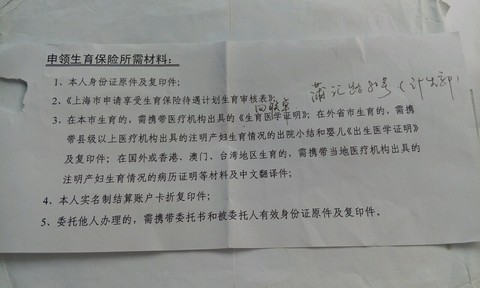 申领生育保险所需材料：
1、本人身份证原件及复印件；
2、《上海市申请享受生育保险待遇计划生育审核表》；
3、在本市生育的，需携带医疗机构出具的《生育医学证明》；在外省市生育的，需携
带县级以上医疗机构出具的注明产妇生育情况的出院小结和婴儿《出生医学证明》
及复印件；在国外或香港、澳门、台湾地区生育的，需携带当地医疗机构出具的
注明产妇生育情况的病历证明等材料及中文翻译件；
4、本人实名制结算账户卡折复印件；
5、委托他人办理的，需携带委托书和被委托人有效身份证原件及复印件。